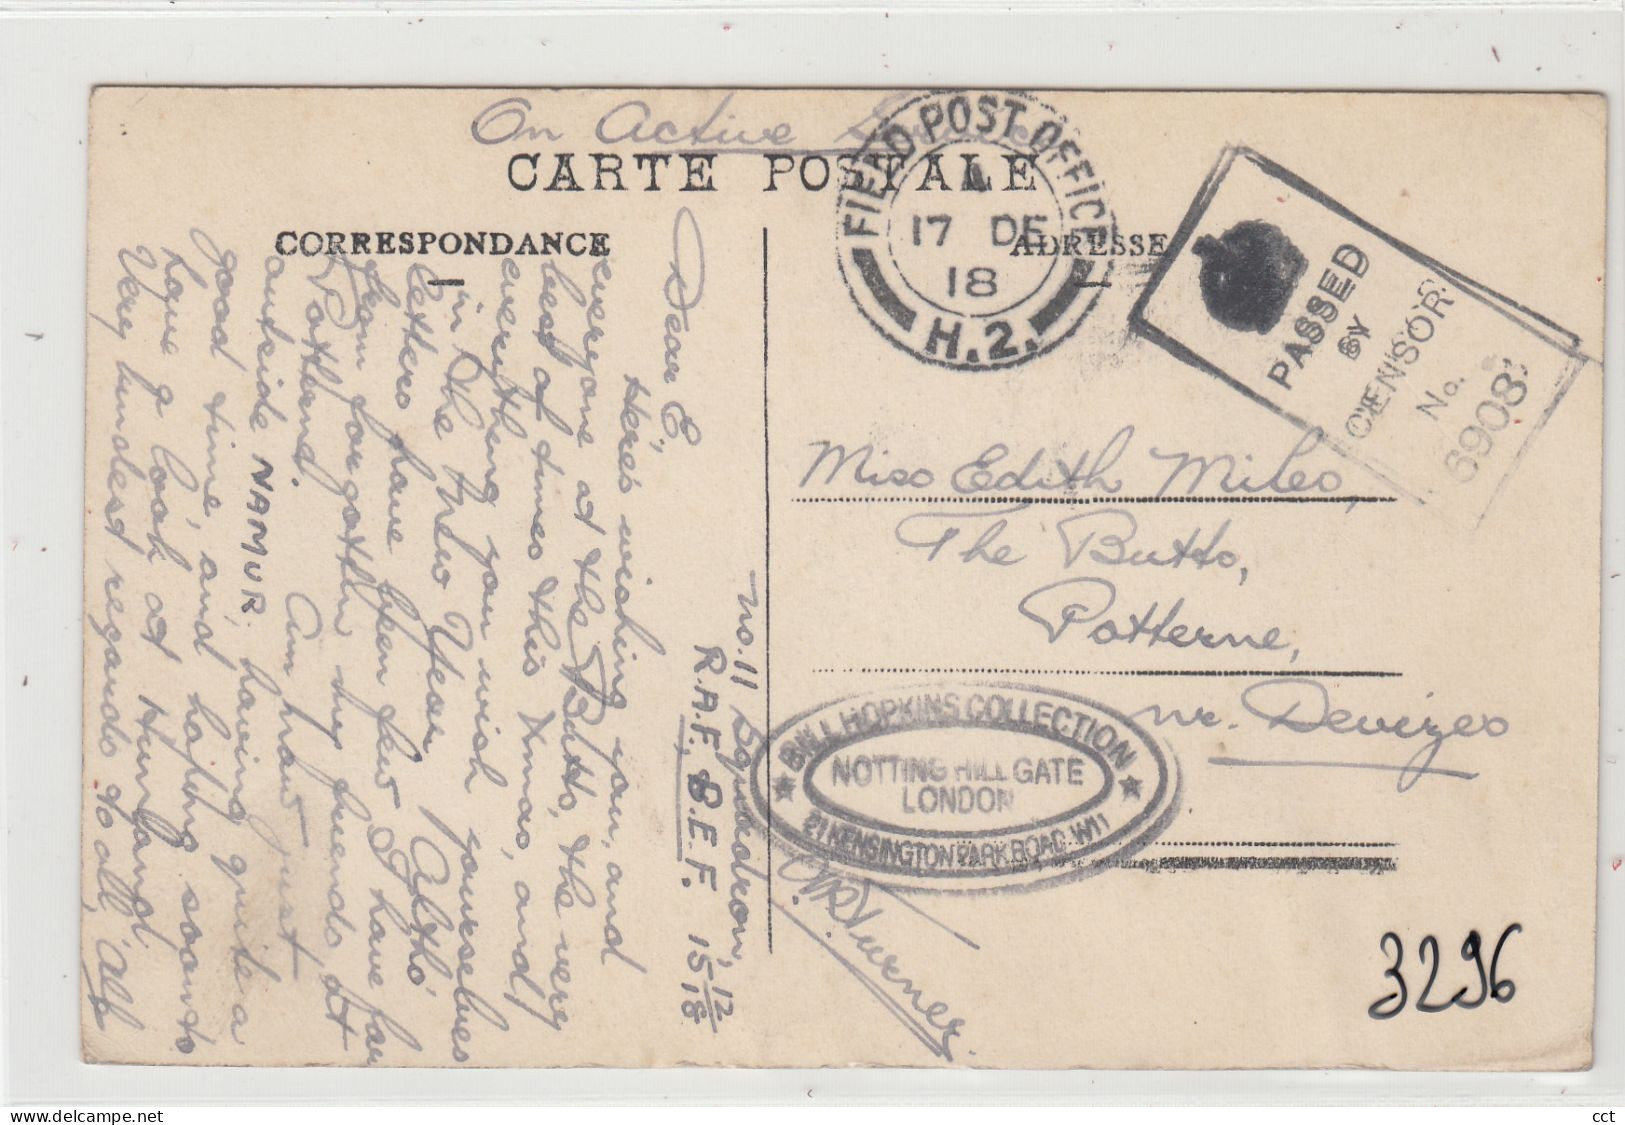 On Active Service
CARTE POSTALE
CORRESPONDANCE
ADRESSE
FIELD POST OFFICE
17 DE
18
H.2.
PASSED
BY
CENSOR
No.
6908
No. 11 Squadron,
R.A.F., B.E.F. 15/12/18
Dear E,
Here's wishing you, and
everyone at the Butts, the very
best of times this Xmas, and
everything you wish yourselves
in the New Year. Altho'
letters have been few I have far
from forgotten my friends at
Potterne. Am now just
outside NAMUR, having quite a
good time, and hoping soon to
have a look at Hunland
Very kindest regards to all, Alf
A.W. Turner.
Miss Edith Miles,
The Butts,
Potterne,
nr. Devizes
BILL HOPKINS COLLECTION
NOTTING HILL GATE
LONDON
21 KENSINGTON PARK ROAD. W11
3296
delcampe.net
cct